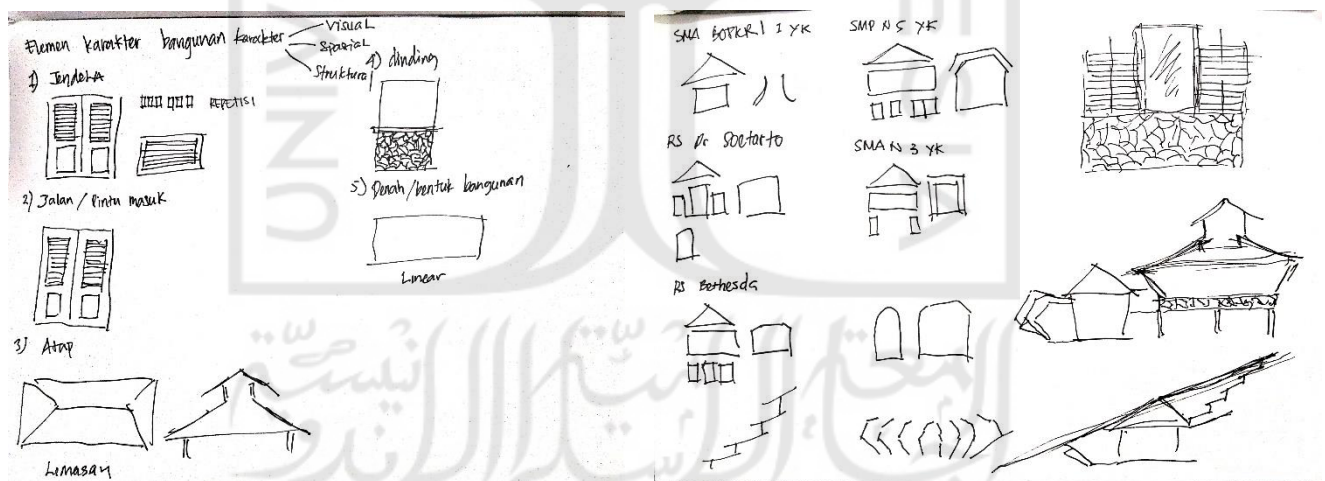 Elemen karakter bangunan karakter
Visual
Spasial
Struktural
1) Jendela
REPETISI
2) Jalan / Pintu masuk
3) Atap
Limasan
4) dinding
5) Denah/bentuk bangunan
Linear
SMA BOPKRI 1 YK
SMP N 5 YK
RS Dr Soetarto
SMA N 3 YK
RS Bethesda